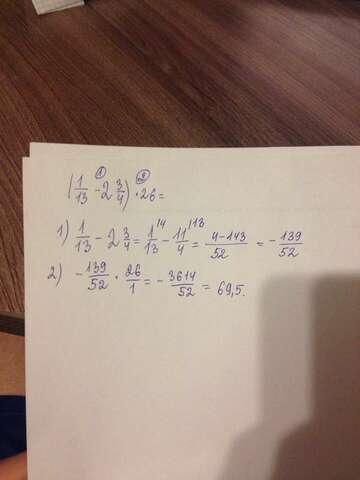 ① ②
(1/13 - 2 3/4) · 26 =
1) 1/13 - 2 3/4 = 1/13 |4 - 11/4 |13 = 4-143/52 = - 139/52
2) - 139/52 · 26/1 = - 3614/52 = 69,5.